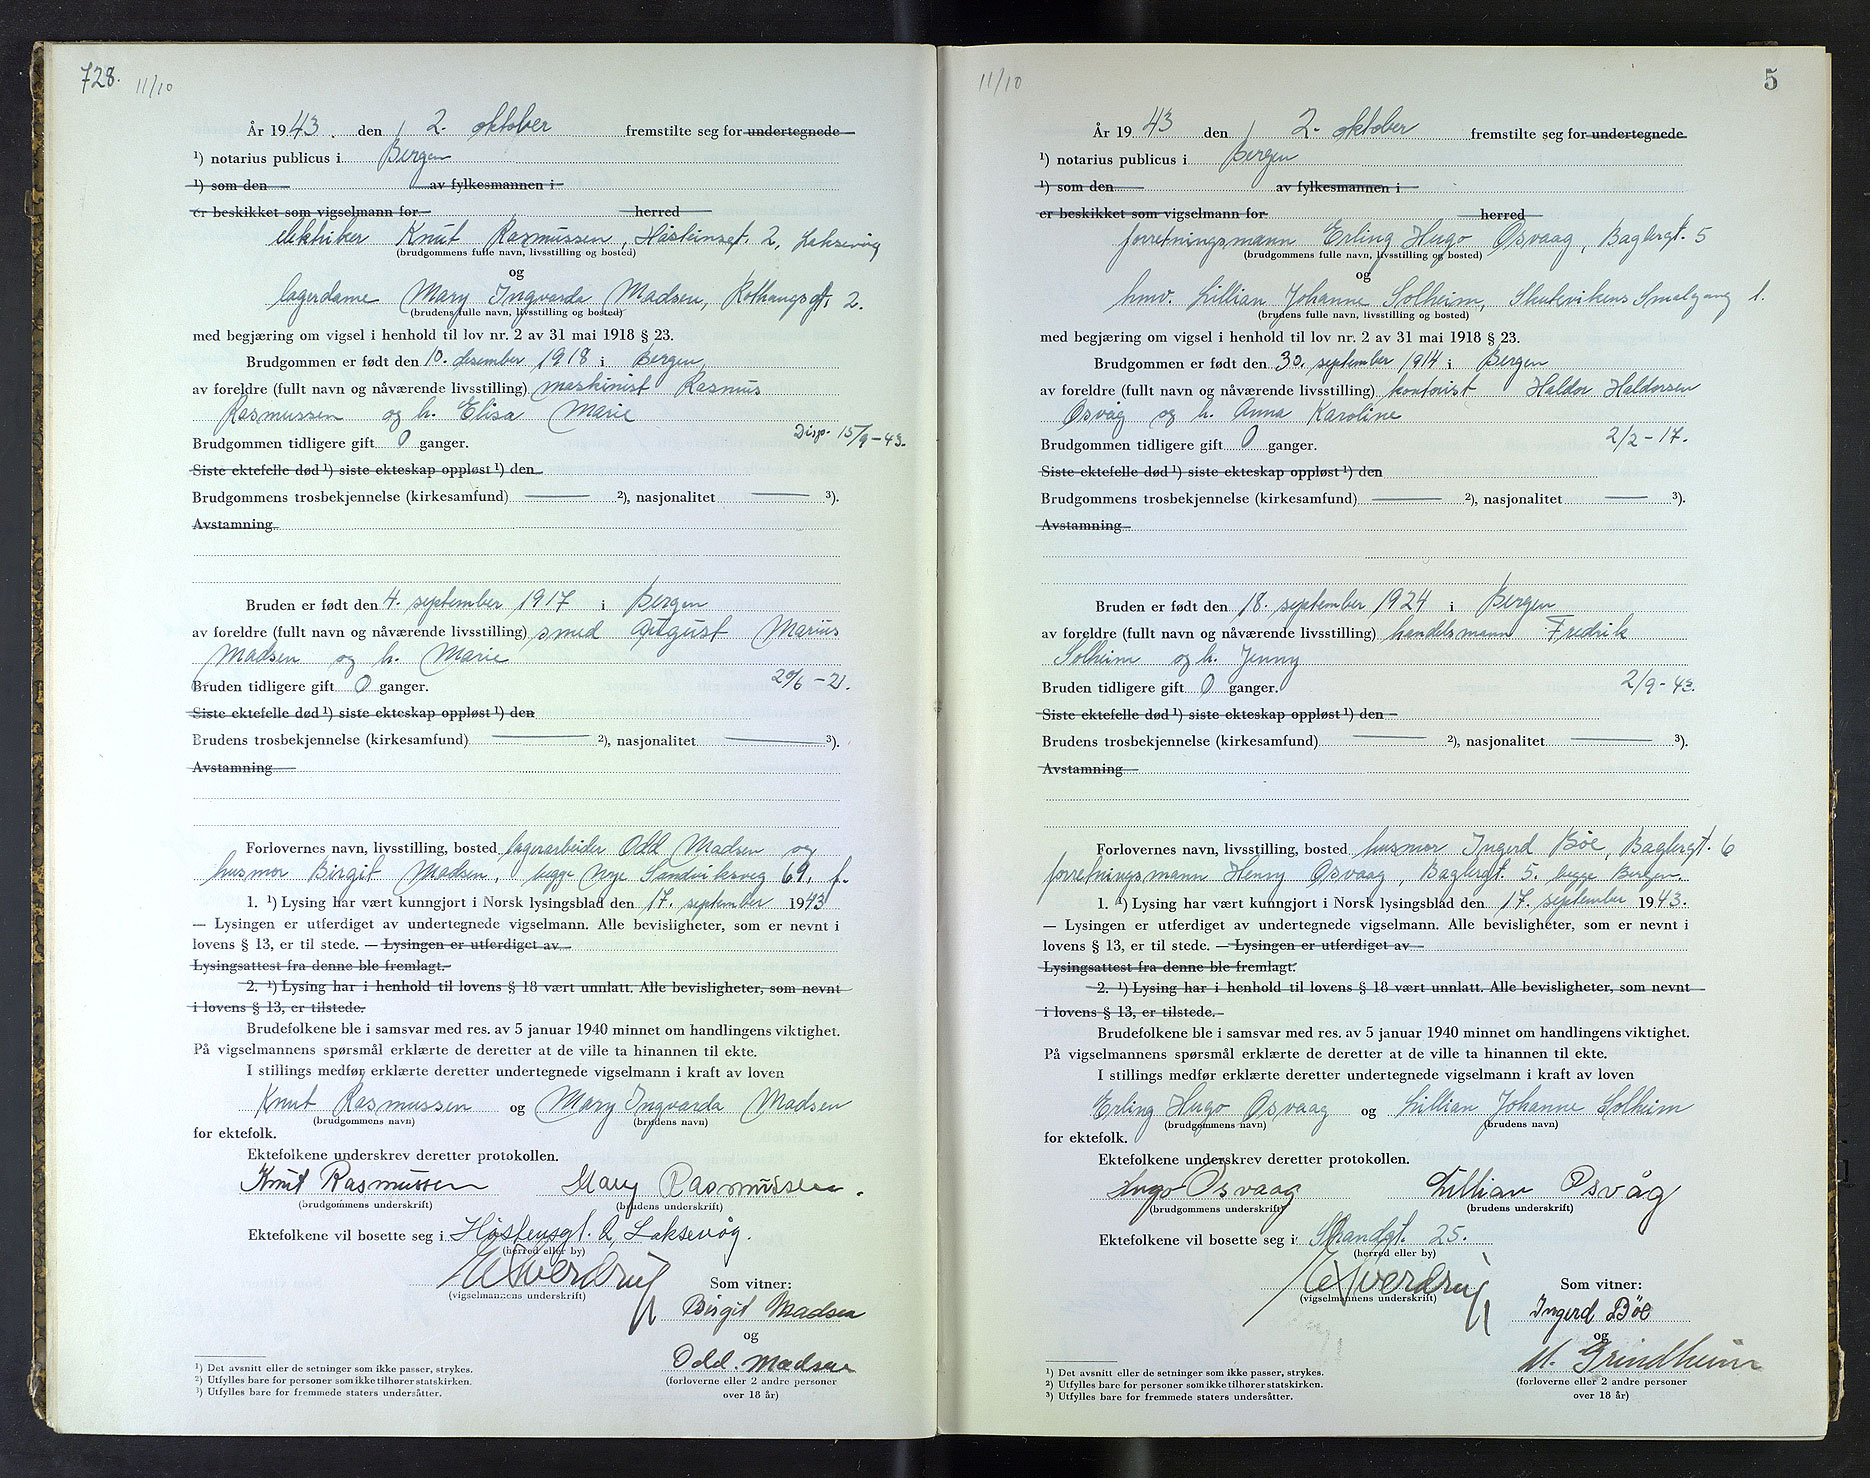 728.
11/10
År 1943 den 2. oktober fremstilte seg for undertegnede
¹) notarius publicus i Bergen
¹) som den av fylkesmannen i
er beskikket som vigselmann for herred
elektriker Knut Rasmussen, Håsteinsgt. 2, Laksevåg
(brudgommens fulle navn, livsstilling og bosted)
og
lagerdame Mary Ingvarda Madsen, 2.
(brudens fulle navn, livsstilling og bosted)
med begjæring om vigsel i henhold til lov nr. 2 av 31 mai 1918 § 23.
Brudgommen er født den 10. desember 1918 i Bergen
av foreldre (fullt navn og nåværende livsstilling) maskinist Rasmus
Rasmussen og h. Elisa Marie
Disp. 15/9-43.
Brudgommen tidligere gift 0 ganger.
Siste ektefelle død ¹) siste ekteskap oppløst ¹) den
Brudgommens trosbekjennelse (kirkesamfund) ²), nasjonalitet ³).
Avstamning
Bruden er født den 4. september 1917 i Bergen
av foreldre (fullt navn og nåværende livsstilling) smed August Marius
Madsen og h. Marie
Bruden tidligere gift 0 ganger. 20/6-21.
Siste ektefelle død ¹) siste ekteskap oppløst ¹) den
Brudens trosbekjennelse (kirkesamfund) ²), nasjonalitet ³).
Avstamning
Forlovernes navn, livsstilling, bosted lagerarbeider Odd Madsen og
husmor Birgit Madsen, begge Nye Sandviksveg 69,
1. ¹) Lysing har vært kunngjort i Norsk lysingsblad den 17. september 1943
— Lysingen er utferdiget av undertegnede vigselmann. Alle bevisligheter, som er nevnt i
lovens § 13, er til stede. — Lysingen er utferdiget av
Lysingsattest fra denne ble fremlagt.
2. ¹) Lysing har i henhold til lovens § 18 vært unnlatt. Alle bevisligheter, som nevnt
i lovens § 13, er tilstede.
Brudefolkene ble i samsvar med res. av 5 januar 1940 minnet om handlingens viktighet.
På vigselmannens spørsmål erklærte de deretter at de ville ta hinannen til ekte.
I stillings medfør erklærte deretter undertegnede vigselmann i kraft av loven
Knut Rasmussen og Mary Ingvarda Madsen
(brudgommens navn) (brudens navn)
for ektefolk.
Ektefolkene underskrev deretter protokollen.
Knut Rasmussen Mary Rasmussen.
(brudgommens underskrift) (brudens underskrift)
Ektefolkene vil bosette seg i Håsteinsgt. 2, Laksevåg.
(herred eller by)
(vigselmannens underskrift)
Som vitner:
Birgit Madsen
og
Odd. Madsen
(forloverne eller 2 andre personer
over 18 år)
¹) Det avsnitt eller de setninger som ikke passer, strykes.
²) Utfylles bare for personer som ikke tilhører statskirken.
³) Utfylles bare for fremmede staters undersåtter.
11/10
5
År 1943 den 2. oktober fremstilte seg for undertegnede
¹) notarius publicus i Bergen
¹) som den av fylkesmannen i
er beskikket som vigselmann for herred
forretningsmann Erling Hugo Osvaag, Baglergt. 5
(brudgommens fulle navn, livsstilling og bosted)
og
hmv. Lillian Johanne Solheim, Skutevikens Smalgang 1.
(brudens fulle navn, livsstilling og bosted)
med begjæring om vigsel i henhold til lov nr. 2 av 31 mai 1918 § 23.
Brudgommen er født den 30. september 1914 i Bergen
av foreldre (fullt navn og nåværende livsstilling) kontorist Haldor Haldorsen
Osvåg og h. Anna Karoline
Brudgommen tidligere gift 0 ganger. 2/2-17.
Siste ektefelle død ¹) siste ekteskap oppløst ¹) den
Brudgommens trosbekjennelse (kirkesamfund) ²), nasjonalitet ³).
Avstamning
Bruden er født den 18. september 1924 i Bergen
av foreldre (fullt navn og nåværende livsstilling) handelsmann Fredrik
Solheim og h. Jenny
Bruden tidligere gift 0 ganger. 2/9-43.
Siste ektefelle død ¹) siste ekteskap oppløst ¹) den
Brudens trosbekjennelse (kirkesamfund) ²), nasjonalitet ³).
Avstamning
Forlovernes navn, livsstilling, bosted husmor Ingerd Böe, Baglergt. 6
forretningsmann Henry Osvaag, Baglergt. 5. begge Bergen.
1. ¹) Lysing har vært kunngjort i Norsk lysingsblad den 17. september 1943.
— Lysingen er utferdiget av undertegnede vigselmann. Alle bevisligheter, som er nevnt i
lovens § 13, er til stede. — Lysingen er utferdiget av
Lysingsattest fra denne ble fremlagt.
2. ¹) Lysing har i henhold til lovens § 18 vært unnlatt. Alle bevisligheter, som nevnt
i lovens § 13, er tilstede.
Brudefolkene ble i samsvar med res. av 5 januar 1940 minnet om handlingens viktighet.
På vigselmannens spørsmål erklærte de deretter at de ville ta hinannen til ekte.
I stillings medfør erklærte deretter undertegnede vigselmann i kraft av loven
Erling Hugo Osvaag og Lillian Johanne Solheim
(brudgommens navn) (brudens navn)
for ektefolk.
Ektefolkene underskrev deretter protokollen.
Hugo Osvaag Lillian Osvåg
(brudgommens underskrift) (brudens underskrift)
Ektefolkene vil bosette seg i Strandgt. 25.
(herred eller by)
(vigselmannens underskrift)
Som vitner:
Ingerd Böe
og
M. Grindheim
(forloverne eller 2 andre personer
over 18 år)
¹) Det avsnitt eller de setninger som ikke passer, strykes.
²) Utfylles bare for personer som ikke tilhører statskirken.
³) Utfylles bare for fremmede staters undersåtter.